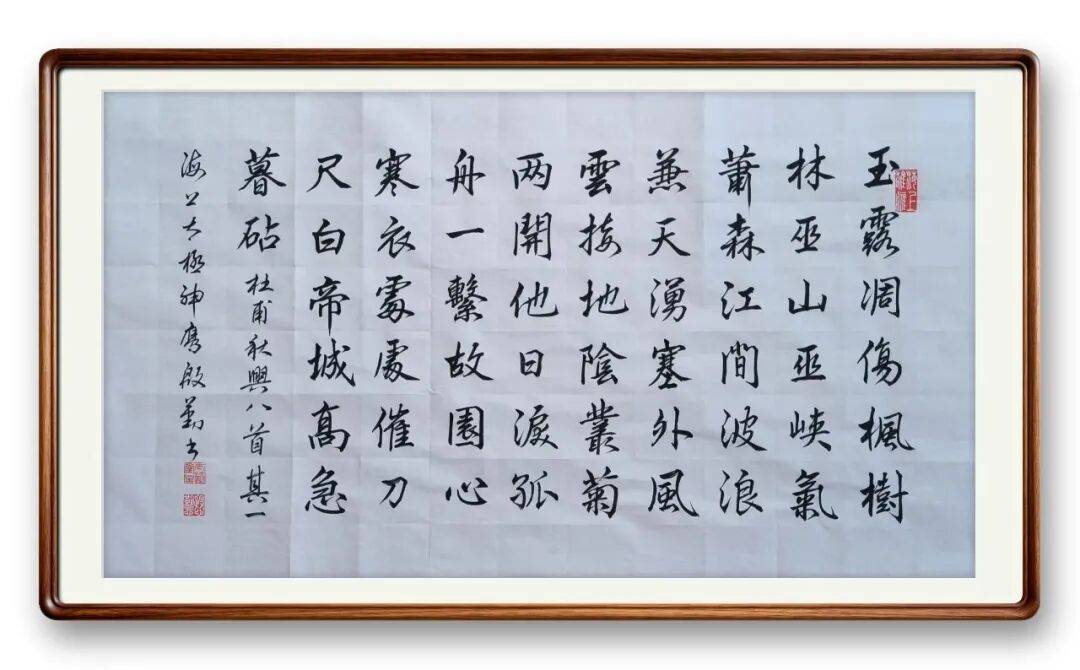 玉露凋傷楓樹
林巫山巫峽氣
蕭森江間波浪
兼天湧塞外風
雲接地陰叢菊
两開他日淚孤
舟一繫故園心
寒衣處處催刀
尺白帝城高急
暮砧 杜甫秋興八首其一
海上太極神鹰殷勤书